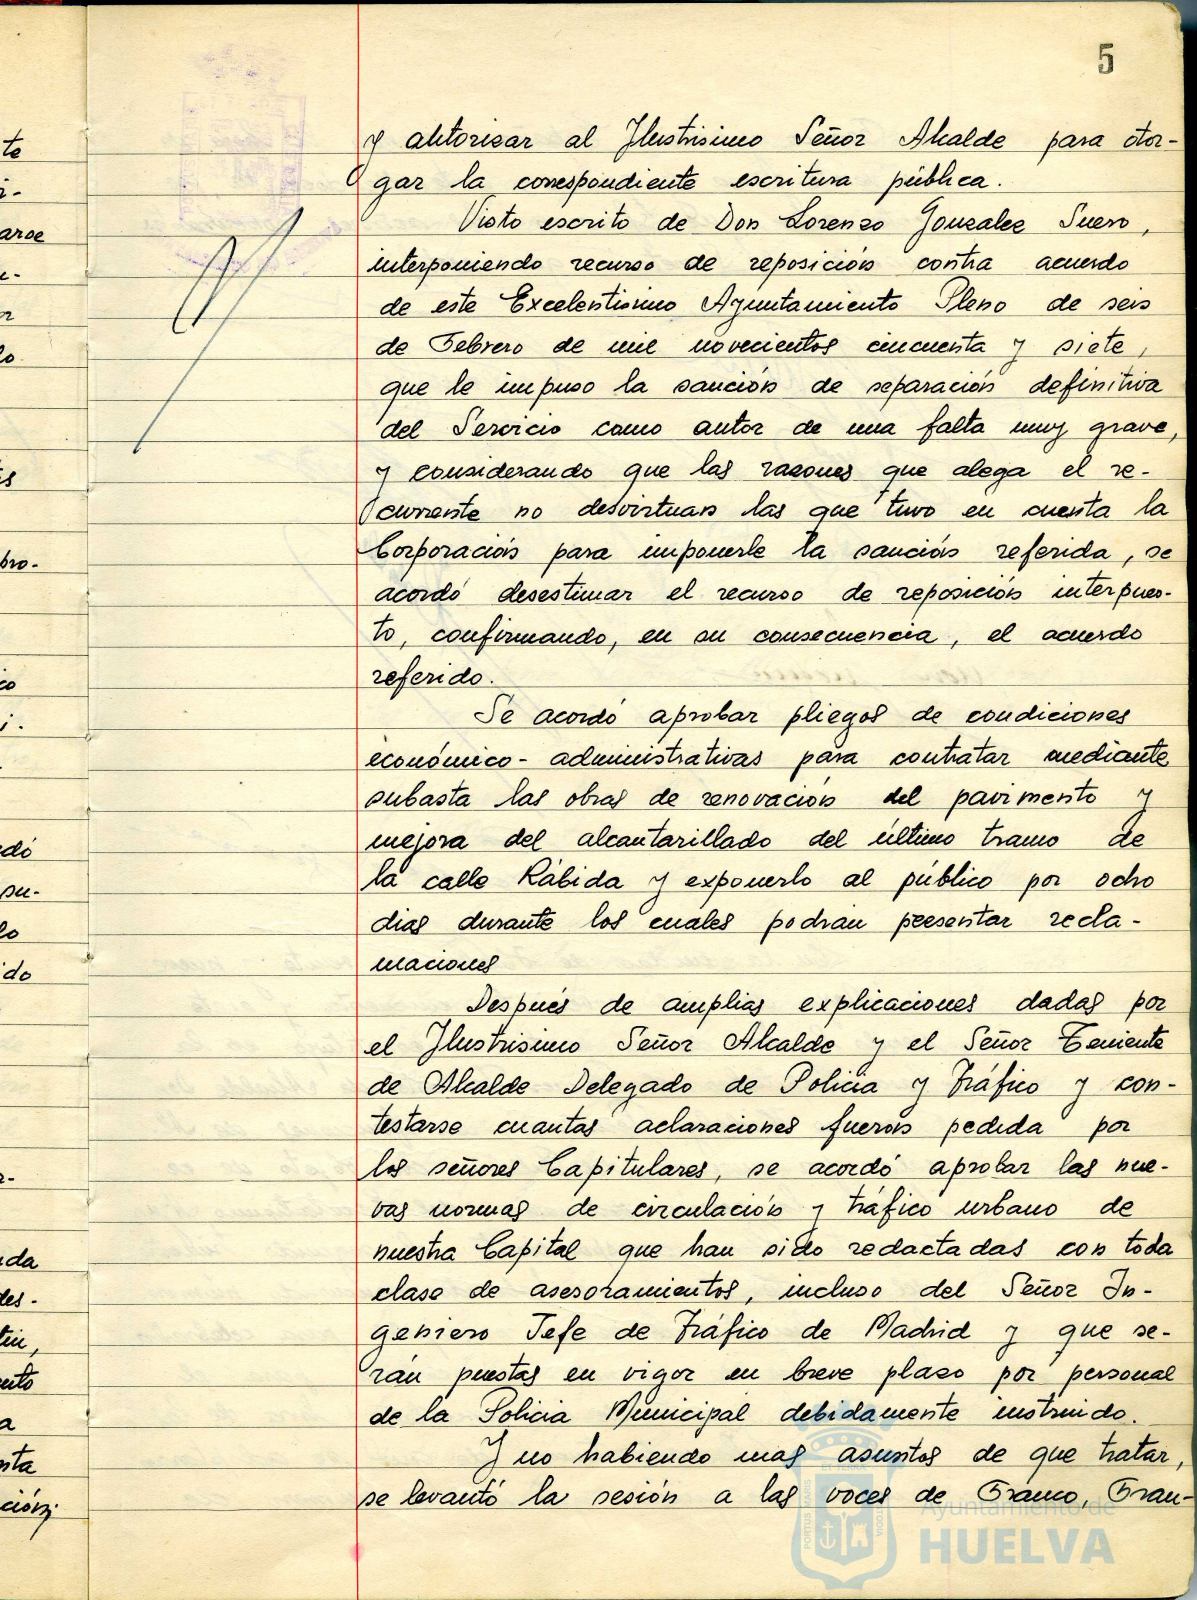 5
y autorizar al Ilustrisimo Señor Alcalde para otor-
gar la correspondiente escritura pública.
Visto escrito de Don Lorenzo Gonzalez Suero,
interponiendo recurso de reposición contra acuerdo
de este Excelentisimo Ayuntamiento Pleno de seis
de Febrero de mil novecientos cincuenta y siete,
que le impuso la sanción de separación definitiva
del Servicio como autor de una falta muy grave,
y considerando que las razones que alega el re-
currente no desvirtuan las que tuvo en cuenta la
Corporación para imponerle la sanción referida, se
acordó desestimar el recurso de reposición interpues-
to, confirmando, en su consecuencia, el acuerdo
referido.
Se acordó aprobar pliegos de condiciones
económico-administrativas para contratar mediante
subasta las obras de renovación del pavimento y
mejora del alcantarillado del último tramo de
la calle Rábida y exponerlo al público por ocho
dias durante los cuales podran presentar recla-
maciones
Después de amplias explicaciones dadas por
el Ilustrisimo Señor Alcalde y el Señor Teniente
de Alcalde Delegado de Policia y Tráfico y con-
testarse cuantas aclaraciones fueron pedida por
los señores Capitulares, se acordó aprobar las nue-
vas normas de circulación y tráfico urbano de
nuestra Capital que han sido redactadas con toda
clase de asesoramientos, incluso del Señor In-
geniero Jefe de Tráfico de Madrid y que se-
rán puestas en vigor en breve plazo por personal
de la Policia Municipal debidamente instruido.
Y no habiendo mas asuntos de que tratar,
se levantó la sesión a las voces de Franco, Fran-
Ayuntamiento de
HUELVA
te
i-
arse
lo
bro-
co
dó
su-
lo
ido
nda
des-
nto
a
nta
ción;